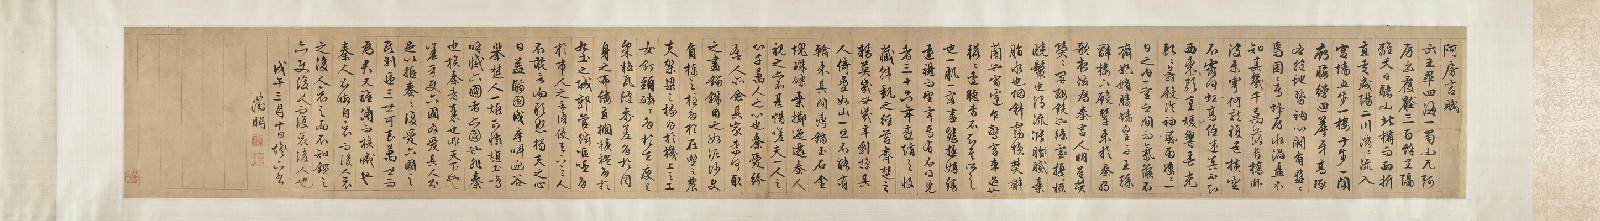 阿房宮賦
六王畢四海一蜀山兀阿
房出覆壓三百餘里隔
離天日驪山北構而西折
直走咸陽二川溶溶流入
宮墻五步一樓十步一閣
廊腰縵迴簷牙高啄
各抱地勢鉤心鬬角盤盤
焉囷囷焉蜂房水渦矗不
知其幾千萬落長橋臥
波未雲何龍複道行空
不霽何虹高低冥迷不知
西東歌臺暖響春光
融融舞殿冷袖風雨淒淒一
日之內一宮之間而氣候不
齊妃嬪媵嬙王子王孫
辭樓下殿輦來於秦朝
歌夜絃為秦宮人明星熒
熒開粧鏡也綠雲擾擾梳
曉鬟也渭流漲膩棄
脂水也烟斜霧橫焚椒
蘭也雷霆乍驚宮車過也
轆轆遠聽杳不知其所之
也一肌一容盡態極妍縵
立遠視而望幸焉有不得見
者三十六年燕趙之收
藏韓魏之經營齊楚之
精英幾世幾年剽掠其
人倚疊如山一旦不能有
輸來其間鼎鐺玉石金
塊珠礫棄擲邐迤秦人
視之亦不甚惜嗟夫一人之
心千萬人之心也秦愛紛
奢人亦念其家奈何取
之盡錙銖用之如泥沙使
負棟之柱多於南畝之農
夫架梁之椽多於機上之工
女釘頭磷磷多於在庾之
粟粒瓦縫參差多於周
身之帛縷直欄橫檻多於
九土之城郭管絃嘔啞多
於市人之言語使天下之人
不敢言而敢怒獨夫之心
日益驕固戍卒叫函谷
舉楚人一炬可憐焦土嗚
呼滅六國者六國也非秦
也族秦者秦也非天下也
嗟夫使六國各愛其人則
足以拒秦秦復愛六國之
民則遞三世可至萬世而
為君天下誰得而族滅也
秦人不暇自哀而後人哀
之後人哀之而不知鑑之
亦使後人而復哀後人也
戊午三月十日燈下書
徵明